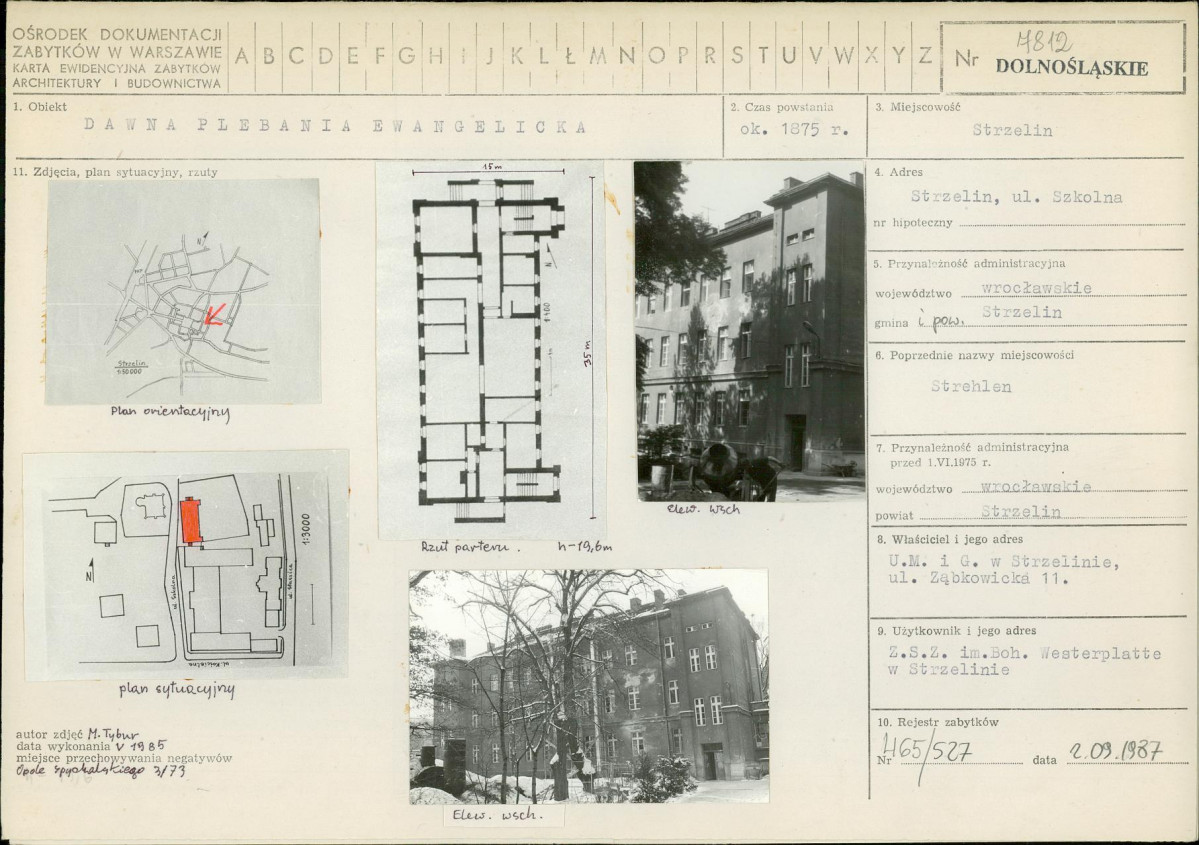 OŚRODEK DOKUMENTACJI
ZABYTKÓW W WARSZAWIE
KARTA EWIDENCYJNA ZABYTKÓW
ARCHITEKTURY I BUDOWNICTWA
A B C D E F G H I J K L Ł M N O P R S T U V W X Y Z
Nr 7812
DOLNOŚLĄSKIE
1. Obiekt
DAWNA PLEBANIA EWANGELICKA
2. Czas powstania
ok. 1875 r.
3. Miejscowość
Strzelin
11. Zdjęcia, plan sytuacyjny, rzuty
N
Strzelin
1:50000
Plan orientacyjny
15m
N
1:400
35m
Rzut parteru. h-19,6m
elew. wsch
N
ul. Szkolna
ul. Kościelna
1:3000
plan sytuacyjny
Elew. wsch.
autor zdjęć M. Tybur
data wykonania V 1985
miejsce przechowywania negatywów
Opole Spychalskiego 3/73
4. Adres
Strzelin, ul. Szkolna
nr hipoteczny
5. Przynależność administracyjna
województwo wrocławskie
gmina i pow. Strzelin
6. Poprzednie nazwy miejscowości
Strehlen
7. Przynależność administracyjna
przed 1.VI.1975 r.
województwo wrocławskie
powiat Strzelin
8. Właściciel i jego adres
U.M. i G. w Strzelinie,
ul. Ząbkowicka 11.
9. Użytkownik i jego adres
Z.S.Z. im.Boh. Westerplatte
w Strzelinie
10. Rejestr zabytków
Nr 465/527 data 2.09.1987